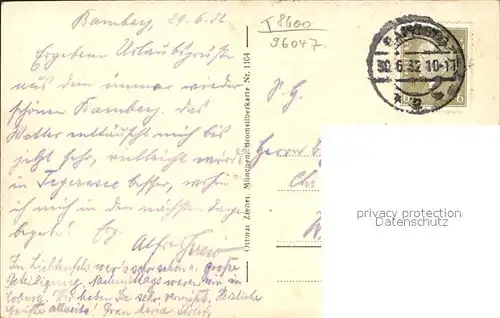 Bamberg, 29.6.32
Ergebene Urlaubsgrüße
aus dem immer wieder
schönen Bamberg. das
Wetter enttäuscht mich bis
jetzt sehr, vielleicht wird es
in Tegernsee besser, wohin
ich mich in den nächsten Tagen
begebe!
Alfred
In Lichtenfels war's sehr schön u. große
Beteiligung, Nachmittags waren wir in
Coburg. Wir haben Sie sehr vermisst, Herzliche
Grüße allseits! Frau Maria
Ottmar Zieher, München. Bromsilberkarte Nr. 1104
T 8600
96047
BAMBERG
30.6.32 10-11
6
S. H.
Herrn
privacy protection
Datenschutz